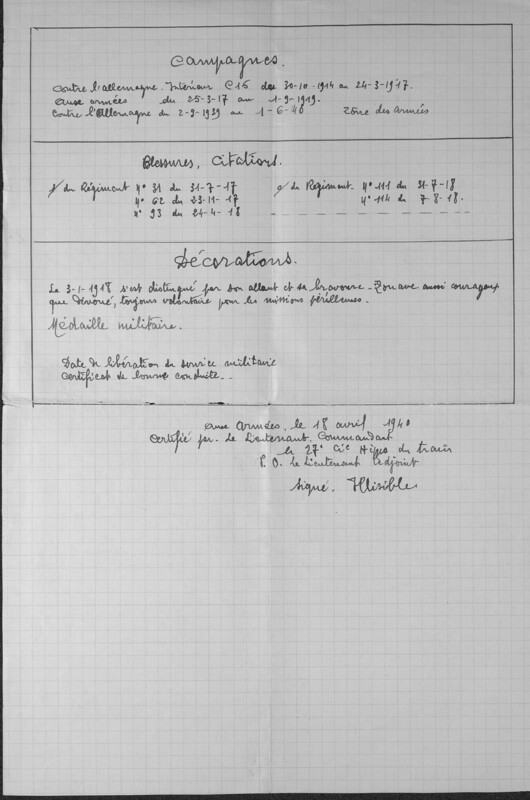 Campagnes.
contre l'allemagne. Intérieur C15 du 30-10-1914 au 24-3-1917.
aux armées du 25-3-17 au 1-9-1919.
contre l'Allemagne du 2-9-1939 au 1-6-40 Zône des Armées
Blessures, Citations.
du Régiment N° 31 du 31-7-17
N° 62 du 23-11-17
N° 93 du 24-4-18
du Régiment N° 111 du 31-7-18
N° 114 du 7-8-18.
Décorations.
Le 3-1-1918 s'est distingué par son allant et sa bravoure - Zouave aussi courageux
que dévoué, toujours volontaire pour les missions périlleuses.
Médaille militaire.
Date de libération du service militaire
Certificat de bonne conduite --
aux Armées, le 18 avril 1940
Certifié par le Lieutenant Commandant
la 27e Cie du train
P. O. Le Lieutenant adjoint
Signé. Illisible